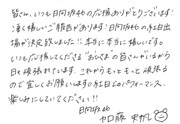 皆さん、いつも日向坂46の応援ありがとうございます!
凄く嬉しいご報告があります!日向坂46の紅白出
場が決定致しました!!本当に本当に嬉しいです。
いつも応援してくださる“おひさま”の皆さんがいるから
日々頑張れています。これからももっともっと頑張る
ので宜しくお願いします☺紅白でのパフォーマンス、
楽しみにしていてください!!
日向坂46
加藤 史帆